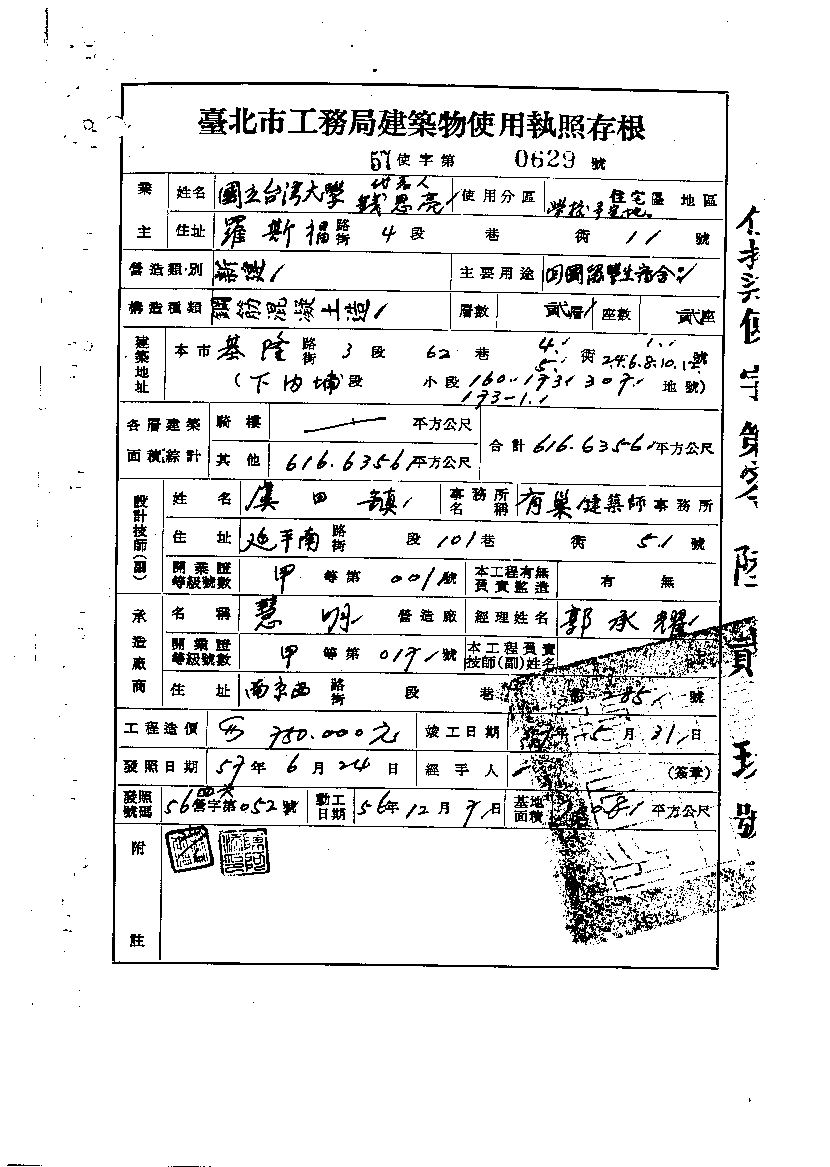 臺北市工務局建築物使用執照存根
57使字第 0629 號
業主 姓名 國立台灣大學 代表人 錢思亮 使用分區 住宅區 地區
學校預定地
住址 羅斯福 路街 4 段 巷 街 11 號
營造類別 新建 主要用途 回國留學生宿舍
構造種類 鋼筋混凝土造 層數 貳層 座數 貳座
建築地址 本市 基隆 路街 3 段 62 巷 4. 5. 街 1. 2.4.6.8.10.12. 號
(下內埔 段 小段 地號)
193-1.
各層建築面積綜計 騎樓 平方公尺 合計 616.6356 平方公尺
其他 616.6356 平方公尺
設計技師(副) 姓名 虞曰鎮 事務所名稱 有巢建築師 事務所
住址 延平南 路街 段 101 巷 街 5.1 號
開業證等級號數 甲 等第 001 號 本工程有無負責監造 有 無
承造廠商 名稱 慧明 營造廠 經理姓名 郭承耀
開業證等級號數 甲 等第 號 本工程負責技師(副)姓名
住址 南京西 路街 段 巷 285 號
工程造價 750.000元 竣工日期 57年 5 月 31 日
發照日期 57 年 6 月 24 日 經手人 (簽章)
發照號碼 56 營字第 052 號 動工日期 56 年 12 月 日 基地面積 平方公尺
附註
使字第零陸貳玖號